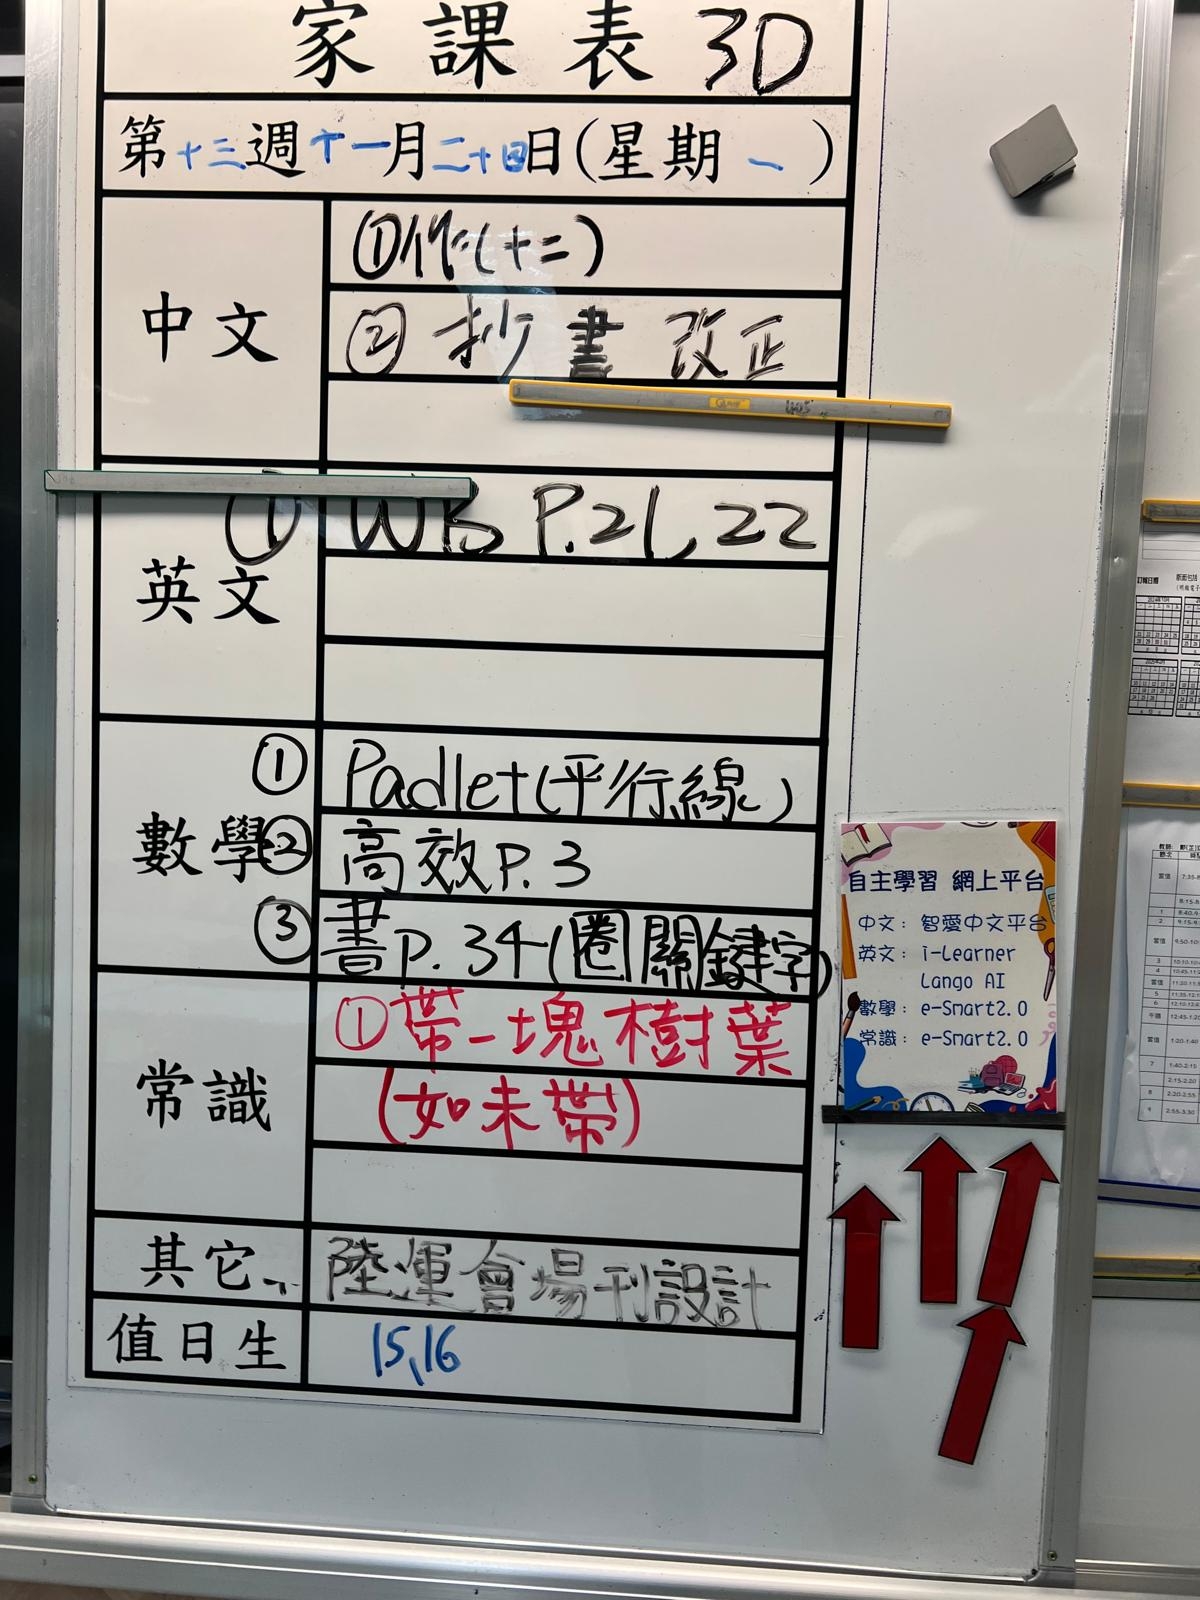 家課表 3D
第十三週十一月二十四日(星期一)
中文
①作(十二)
②抄書改正
英文
① WB P.21, 22
數學
① Padlet(平行線)
② 高效P.3
③ 書P.34(圈關鍵字)
常識
①帶一塊樹葉
(如未帶)
其它
陸運會場刊設計
值日生
15,16
自主學習 網上平台
中文: 智愛中文平台
英文: i-Learner
Lango AI
數學: e-Smart2.0
常識: e-Smart2.0